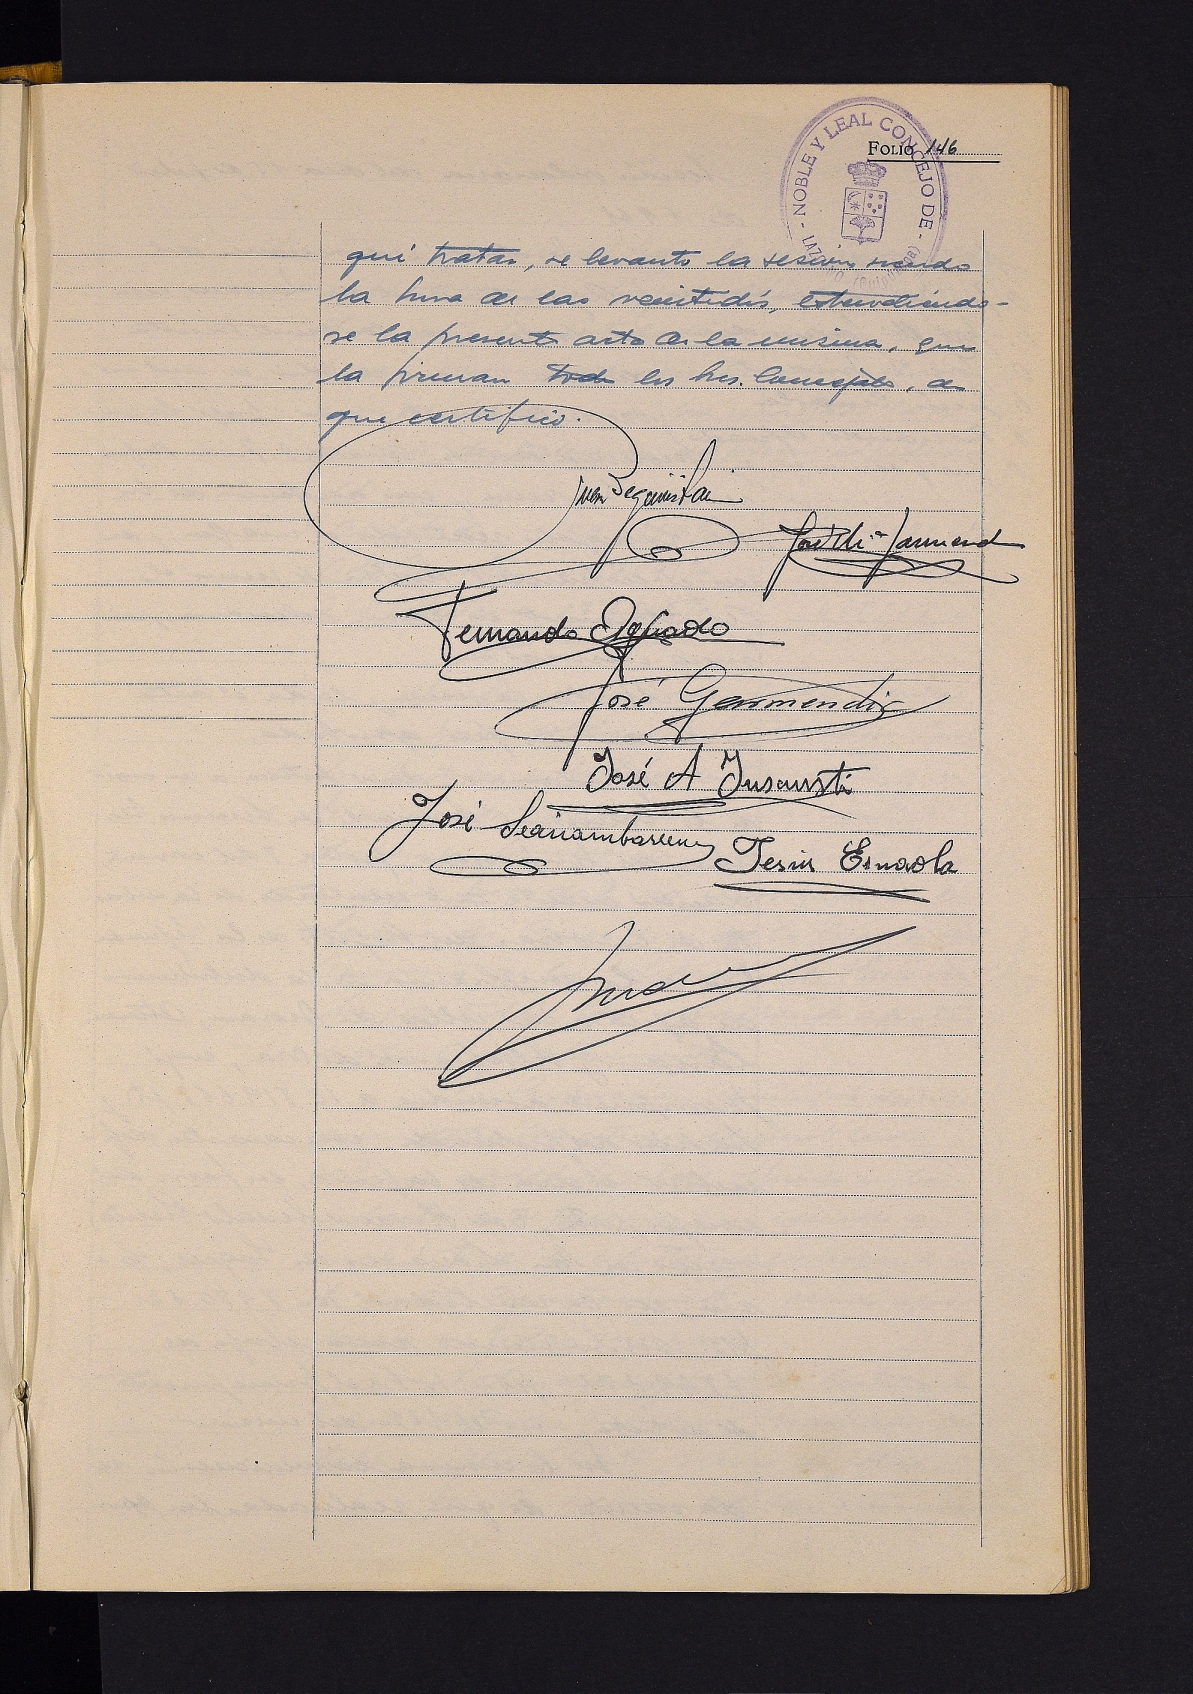 FOLIO 146
- NOBLE Y LEAL CONCEJO DE -
que tratar, se levantó la sesión siendo
la hora de las veintidós, extendiéndo-
se la presente acta de la misma, que
la firman todos los Sres. Concejales, de
que certifico.
Juan Beguiristain
José Mª Garmend
Fernando
José Garmendia
José A Insausti
José
Jesús Esnaola